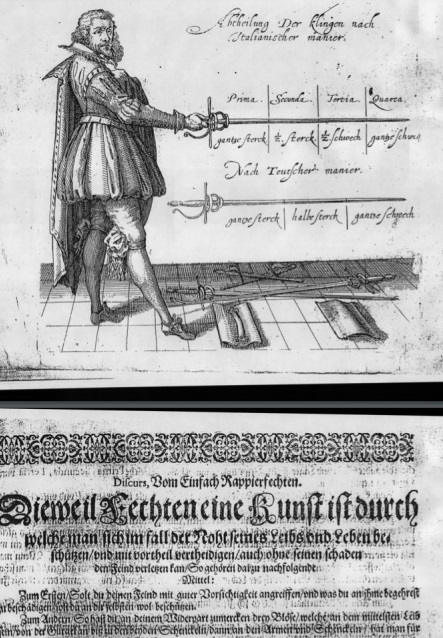 Abtheilung Der klingen nach
Italianischer manier.
Prima. Secunda. Tertia. Quarta.
gantze sterck ½ sterck ½ schwech gantze schwech
Nach Teutscher manier.
gantze sterck halbe sterck gantze schwech
Discurs, Vom Einfach Rappierfechten.
Dieweil Fechten eine Kunst ist durch
welche man sich im fall der Noht seines Leibs vnd Leben be-
schützen/vnd mit vortheil vertheidigen/auch ohne seinen schaden
den Feind verletzen kan/So gehören darzu nachfolgende
Mittel:
Zum Ersten/Solt du deinen Feind mit guter Vorsichtigkeit angreiffen/vnd was du an ihme begehrest
zu beschädigen/solt du an dir selbsten wol beschützen.
Zum Andern/So hast du an deinem Widerpart zumercken drey Blösse/welche/an dem mittelsten Leib